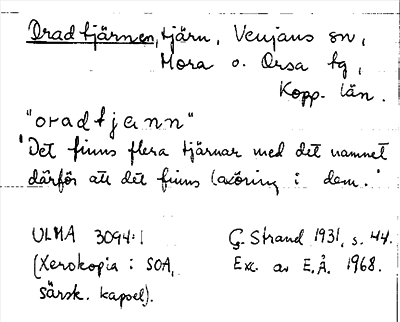 Oradtjärnen, tjärn, Venjans sn,
Mora o. Orsa tg,
Kopp. län.
"oradtjenn"
"Det finns flera tjärnar med det namnet
därför att det finns laxöring i dem."
ULMA 3094:1
(Xerokopia i SOA,
särsk. kapsel).
G. Strand 1931, s. 44.
Exc. av E.Å. 1968.